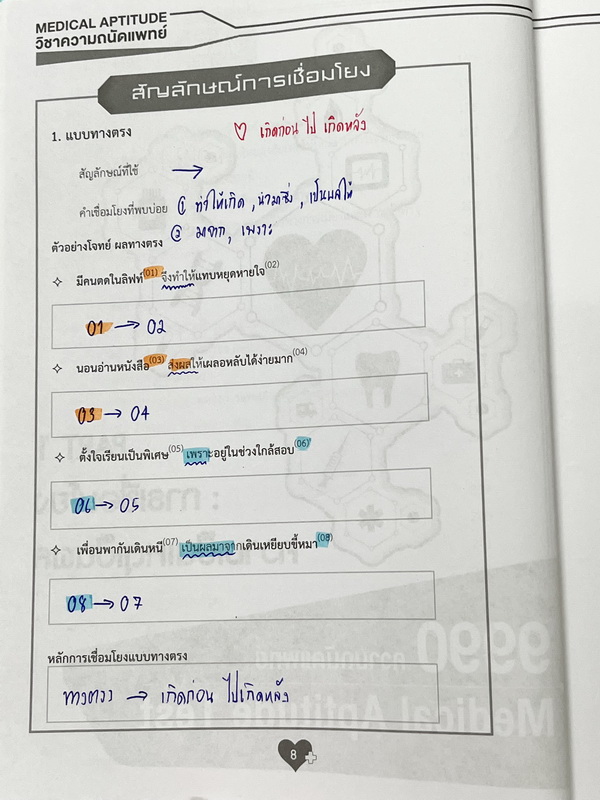 MEDICAL APTITUDE
วิชาความถนัดแพทย์
สัญลักษณ์การเชื่อมโยง
1. แบบทางตรง
♡ เกิดก่อน ไป เกิดหลัง
สัญลักษณ์ที่ใช้ →
คำเชื่อมโยงที่พบบ่อย ① ทำให้เกิด, นำมาซึ่ง, เป็นผลให้
② มาจาก, เพราะ
ตัวอย่างโจทย์ ผลทางตรง
✧ มีคนตดในลิฟท์(01) จึงทำให้แทบหยุดหายใจ(02)
01 → 02
✧ นอนอ่านหนังสือ(03) ส่งผลให้เผลอหลับได้ง่ายมาก(04)
03 → 04
✧ ตั้งใจเรียนเป็นพิเศษ(05) เพราะอยู่ในช่วงใกล้สอบ(06)
06 → 05
✧ เพื่อนพากันเดินหนี(07) เป็นผลมาจากเดินเหยียบขี้หมา(08)
08 → 07
หลักการเชื่อมโยงแบบทางตรง
ทางตรง → เกิดก่อน ไปเกิดหลัง
8